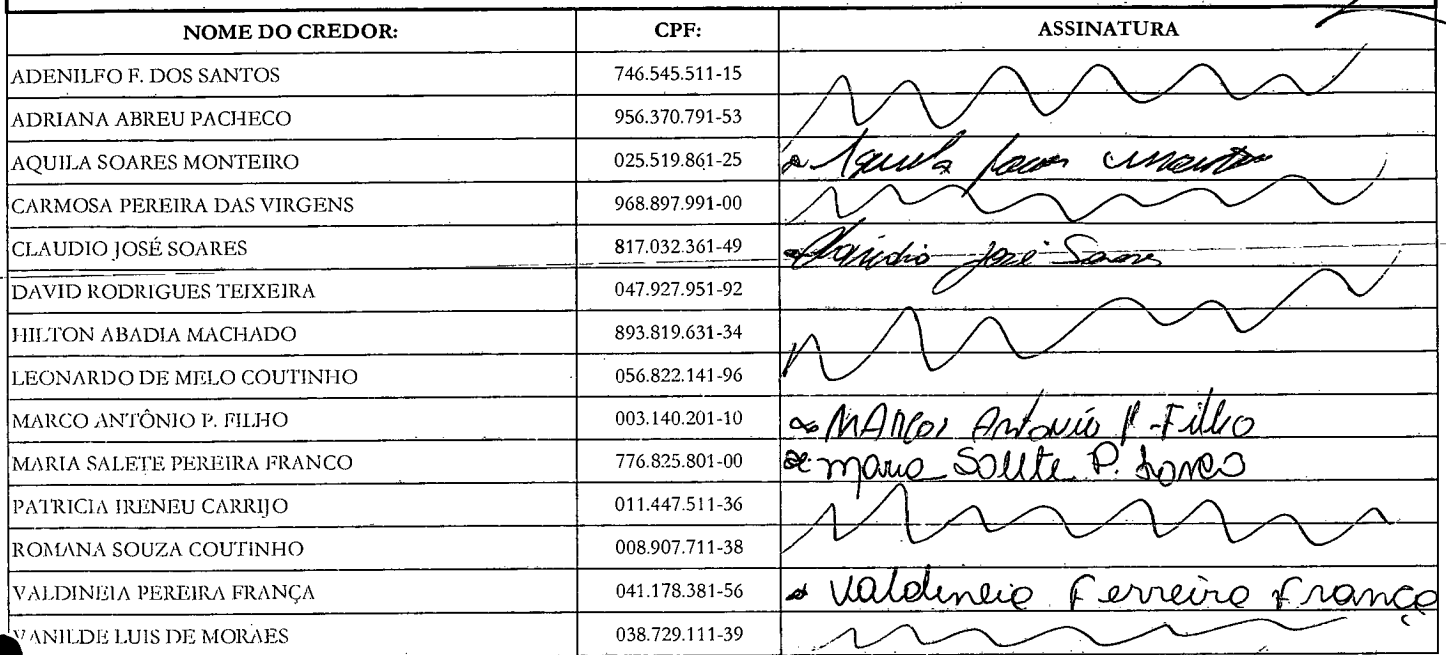 NOME DO CREDOR: CPF: ASSINATURA
ADENILFO F. DOS SANTOS 746.545.511-15
ADRIANA ABREU PACHECO 956.370.791-53
AQUILA SOARES MONTEIRO 025.519.861-25 Aquila
CARMOSA PEREIRA DAS VIRGENS 968.897.991-00
CLAUDIO JOSÉ SOARES 817.032.361-49 Claúdio José Soares
DAVID RODRIGUES TEIXEIRA 047.927.951-92
HILTON ABADIA MACHADO 893.819.631-34
LEONARDO DE MELO COUTINHO 056.822.141-96
MARCO ANTÔNIO P. FILHO 003.140.201-10 MARCOS Antonio P. Filho
MARIA SALETE PEREIRA FRANCO 776.825.801-00 maria Salete P. Franco
PATRICIA IRENEU CARRIJO 011.447.511-36
ROMANA SOUZA COUTINHO 008.907.711-38
VALDINEIA PEREIRA FRANÇA 041.178.381-56 Valdineia Ferreira França
VANILDE LUIS DE MORAES 038.729.111-39